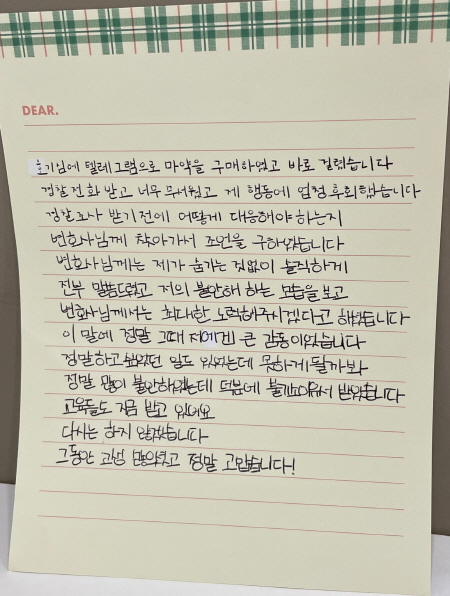 DEAR.
호기심에 텔레그램으로 마약을 구매하였고 바로 걸렸습니다
경찰 전화 받고 너무 무서웠고 제 행동에 엄청 후회했습니다
경찰조사 받기전에 어떻게 대응해야 하는지
변호사님께 찾아가서 조언을 구하였습니다
변호사님께는 제가 숨기는 것없이 솔직하게
전부 말씀드렸고 저의 불안해 하는 모습을 보고
변호사님께서는 최대한 노력해주시겠다고 해주셨습니다
이 말에 정말 그때 저에겐 큰 감동이었습니다
정말하고싶었던 일도 있었는데 못하게될까봐
정말 많이 불안하였는데 덕분에 불기소이유서 받았습니다
교육들도 지금 받고 있어요
다시는 하지 않겠습니다
그동안 고생 많으셨고 정말 고맙습니다!